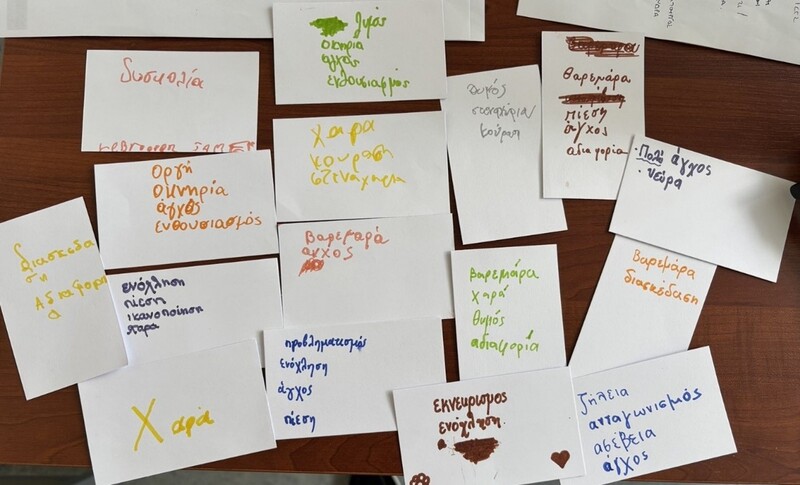 δυσκολία
θυμός
οκνηρία
άγχος
ενθουσιασμός
θυμός
στεναχώρια
κούραση
θαρεμάρα
πίεση
άγχος
αδιαφορία
·Πολύ άγχος
·νεύρα
οργή
οκνηρία
άγχος
ενθουσιασμός
χαρά
κούραση
στεναχώρια
διασκέδα
ση
βαρεμαρά
άγχος
ενόχληση
πίεση
ικανοποίηση
χαρα
Βαρεμάρα
χαρά
θυμός
αδιαφορία
Βαρεμάρα
διασκέδαση
Χαρά
προβληματισμός
ενόχληση
άγχος
πίεση
εκνευρισμος
ενόχληση
ζήλεια
ανταγωνισμός
ασέβεια
άγχος